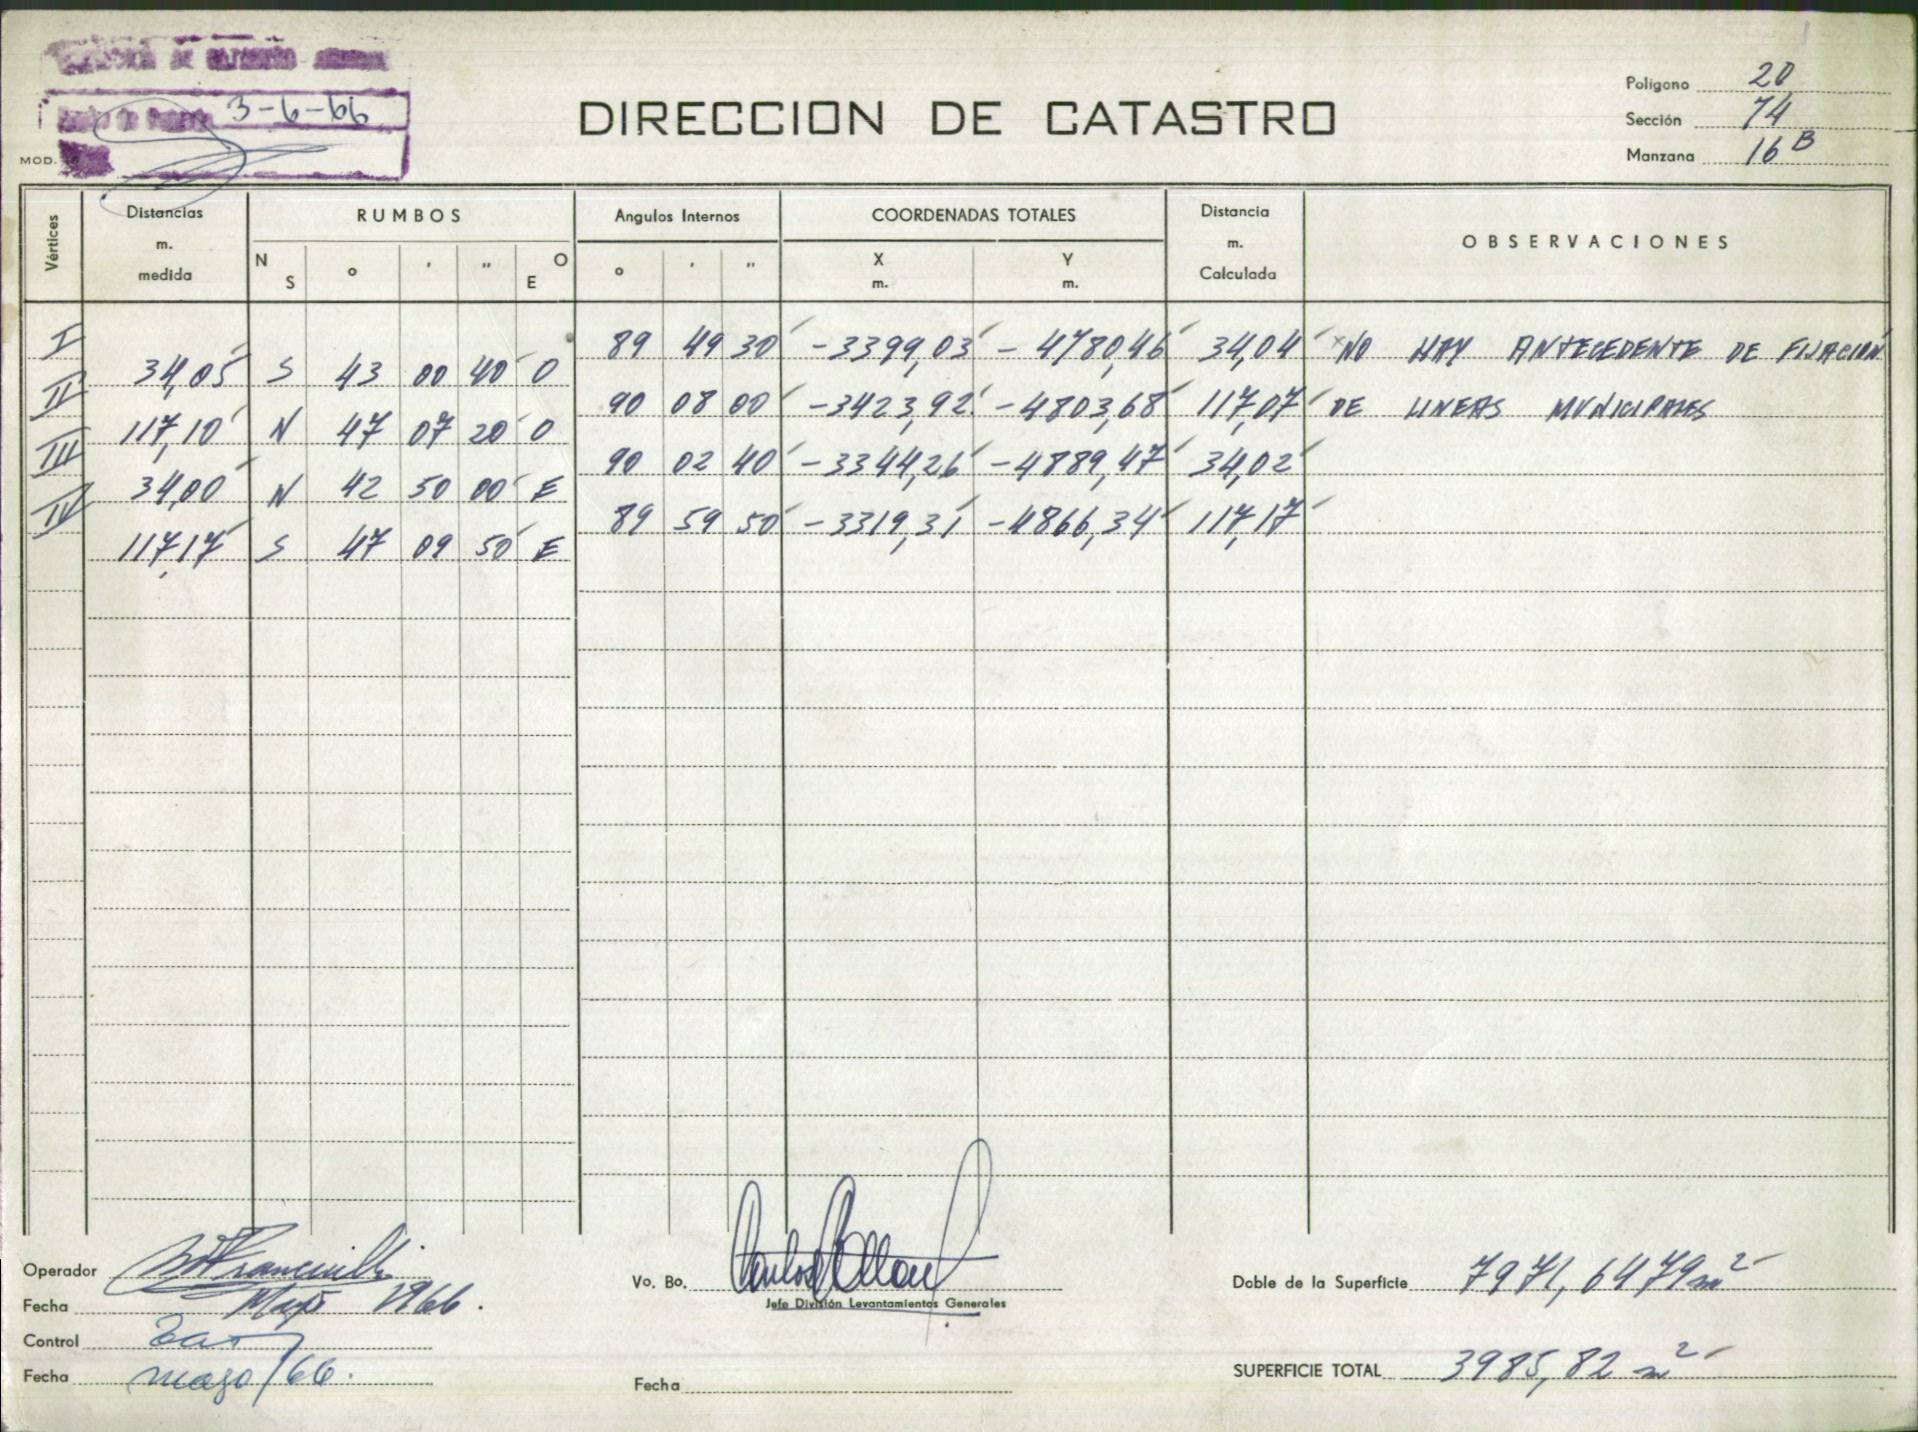 DE CATASTRO
3-6-66
DIRECCION DE CATASTRO
Polígono 20
Sección 74
Manzana 16 B
MOD.
Vértices
Distancias m. medida
RUMBOS
N S ° ' '' O E
Angulos Internos
° ' ''
COORDENADAS TOTALES
X m. Y m.
Distancia m. Calculada
OBSERVACIONES
I 89 49 30 -3399,03 -4780,46 34,04 NO HAY ANTECEDENTE DE FIJACIÓN
34,05 S 43 00 40 O
II 90 08 00 -3423,92 -4803,68 117,07 DE LINEAS MUNICIPALES
117,10 N 47 07 20 O
III 90 02 40 -3344,26 -4889,47 34,02
34,00 N 42 50 00 E
IV 89 59 50 -3319,31 -4866,34 117,17
117,17 S 47 09 50 E
Operador
Fecha Mayo 1966.
Control
Fecha mayo/66.
Vo. Bo.
Jefe División Levantamientos Generales
Fecha
Doble de la Superficie 7971,6479 m²
SUPERFICIE TOTAL 3985,82 m²